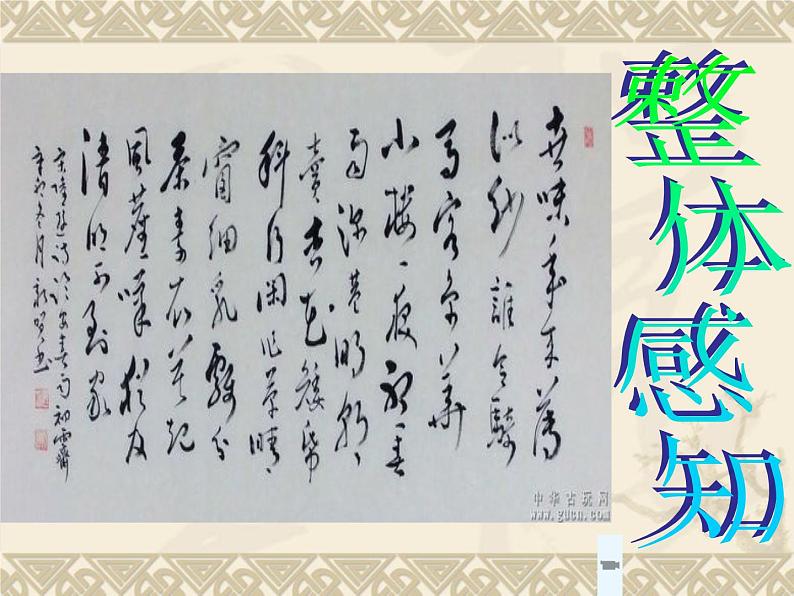 世味年来薄
似纱谁令骑
马客京华
小楼一夜听春
雨深巷明朝
卖杏花矮纸
斜行闲作草晴
窗细乳戏分
茶素衣莫起
风尘叹犹及
清明可到家
宋陆游诗临安春雨初霁
冬月
整体感知
中华古玩网
www.gucn.com